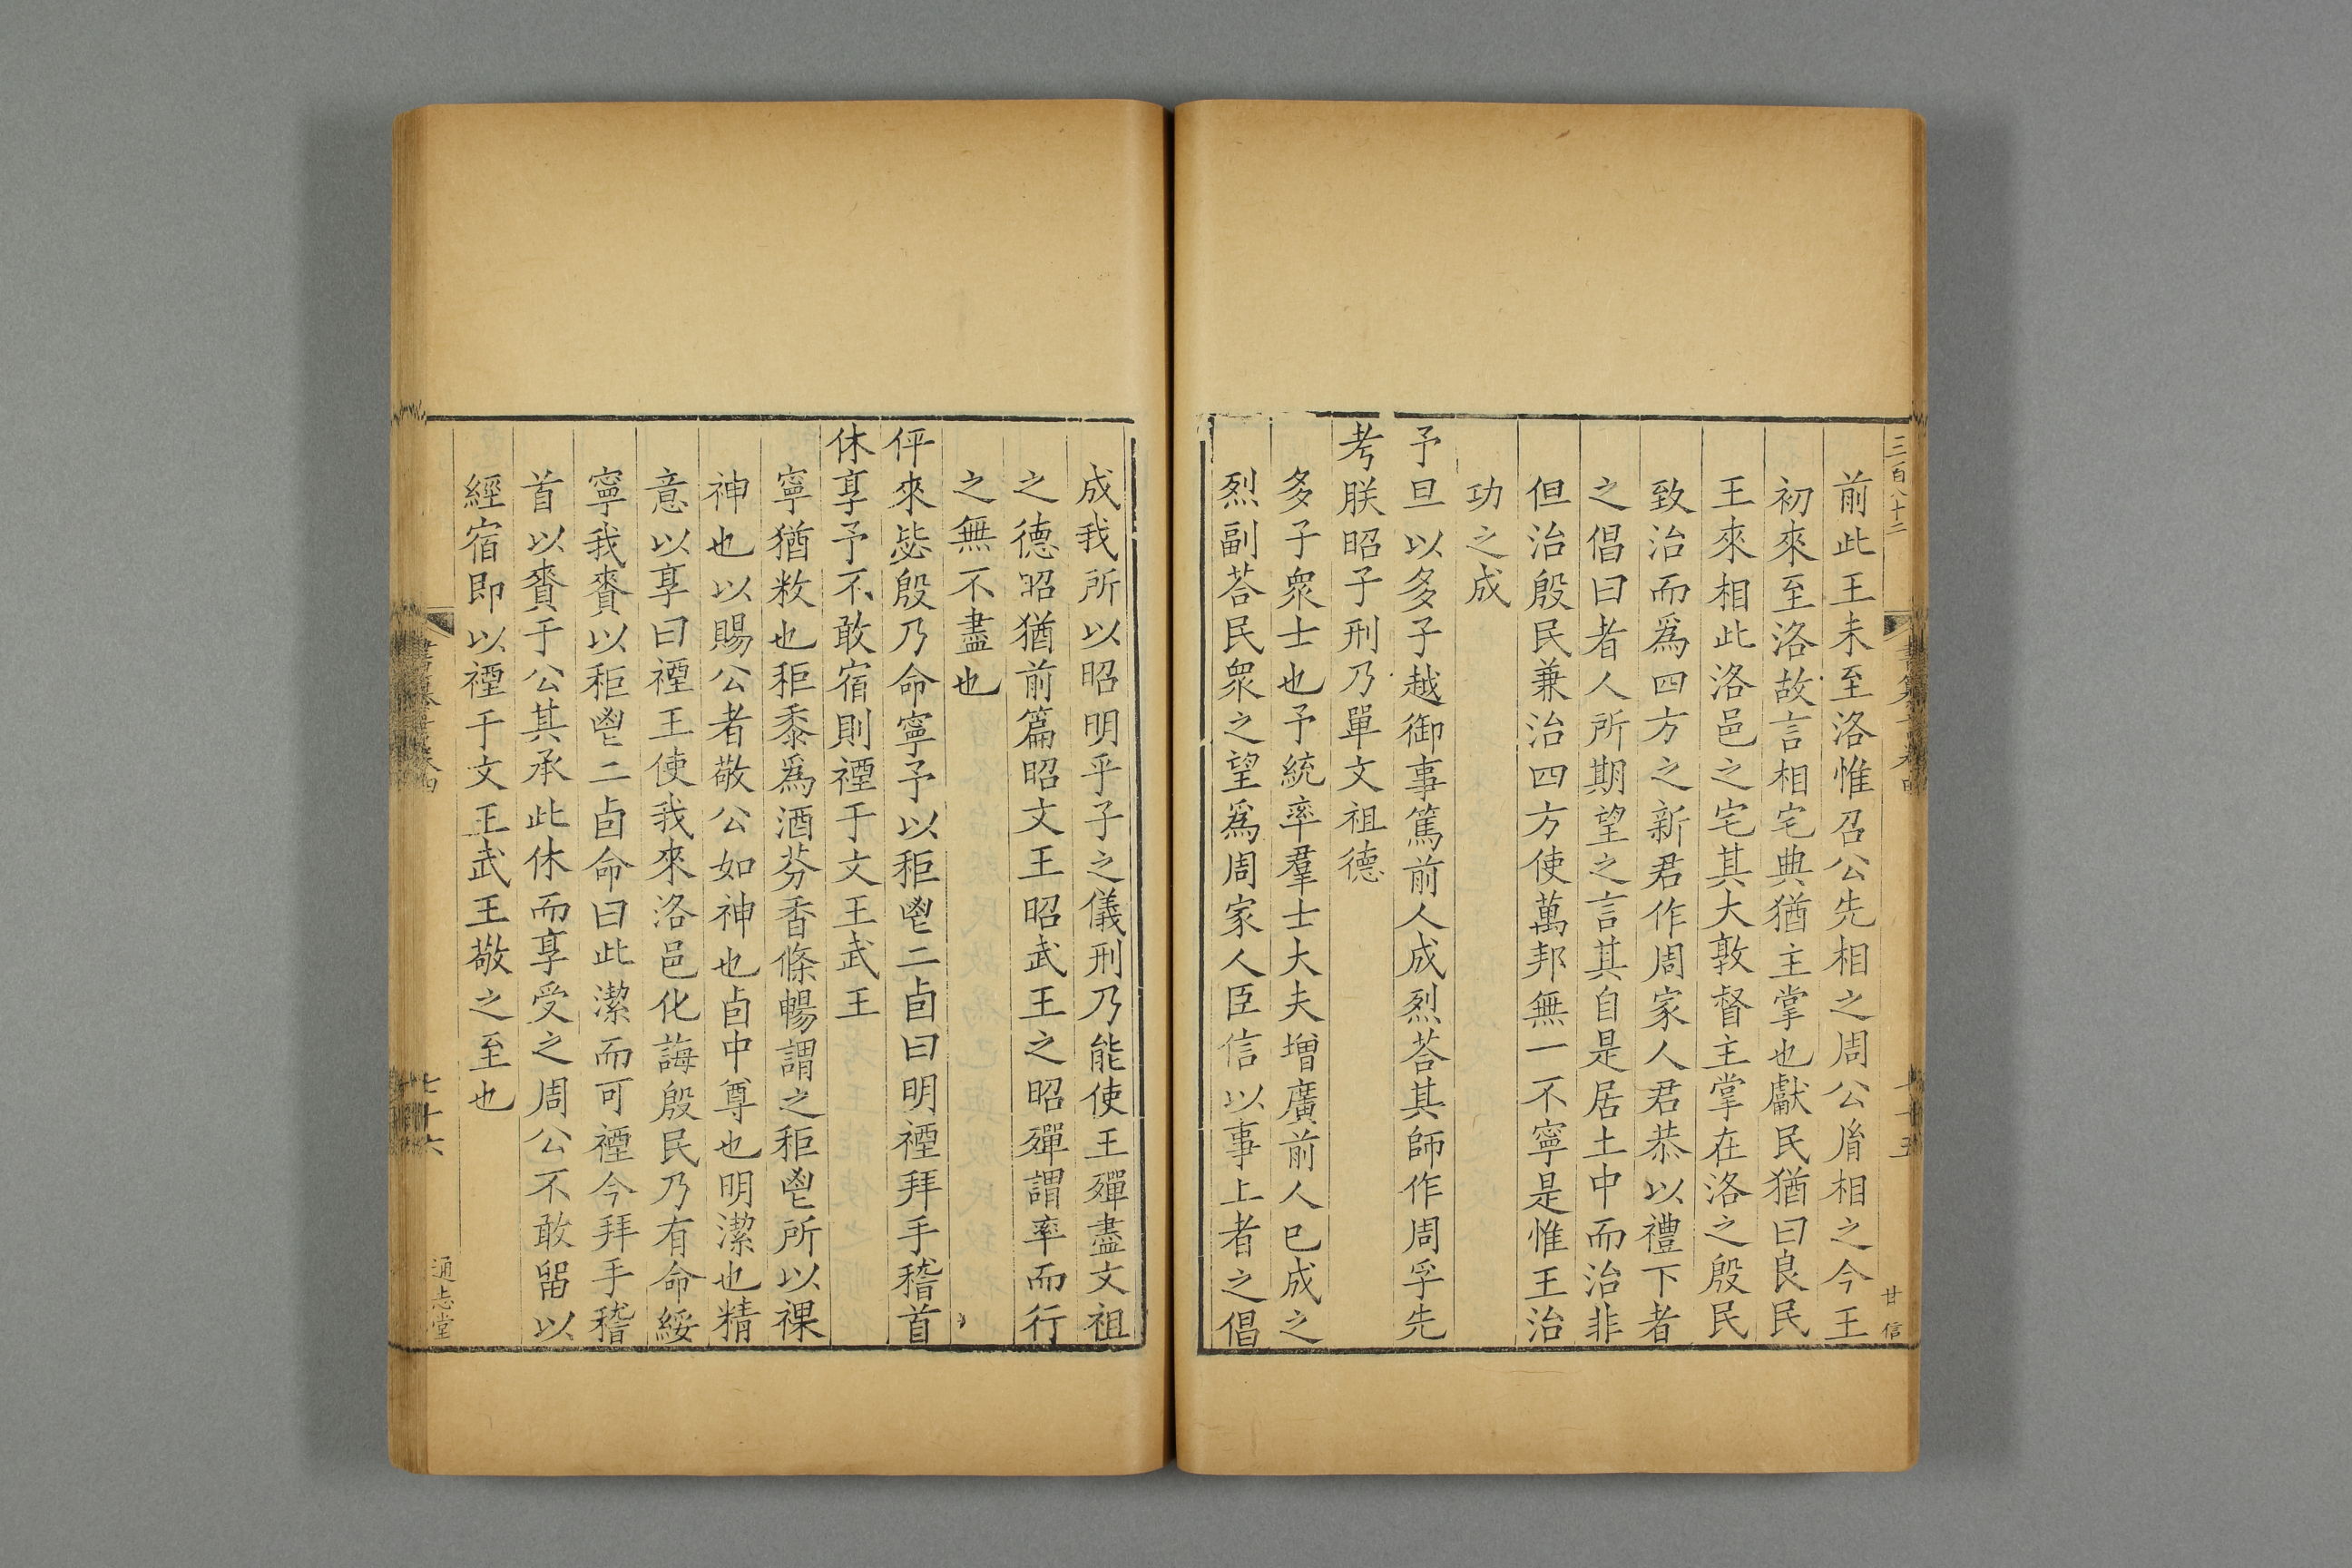 三百八十二
甘信
前此王未至洛惟召公先相之周公胥相之今王
初來至洛故言相宅典猶主掌也獻民猶曰良民
王來相此洛邑之宅其大敦督主掌在洛之殷民
致治而爲四方之新君作周家人君恭以禮下者
之倡曰者人所期望之言其自是居土中而治非
但治殷民兼治四方使萬邦無一不寧是惟王治
功之成
予旦以多子越御事篤前人成烈荅其師作周孚先
考朕昭子刑乃單文祖德
多子衆士也予統率羣士大夫增廣前人已成之
烈副荅民衆之望爲周家人臣信以事上者之倡
成我所以昭明乎子之儀刑乃能使王殫盡文祖
之德昭猶前篇昭文王昭武王之昭殫謂率而行
之無不盡也
伻來毖殷乃命寧予以秬鬯二卣曰明禋拜手稽首
休享予不敢宿則禋于文王武王
寧猶敉也秬黍爲酒芬香條暢謂之秬鬯所以祼
神也以賜公者敬公如神也卣中尊也明潔也精
意以享曰禋王使我來洛邑化誨殷民乃有命綏
寧我賚以秬鬯二卣命曰此潔而可禋今拜手稽
首以賚于公其承此休而享受之周公不敢留以
經宿即以禋于文王武王敬之至也
七十六
通志堂